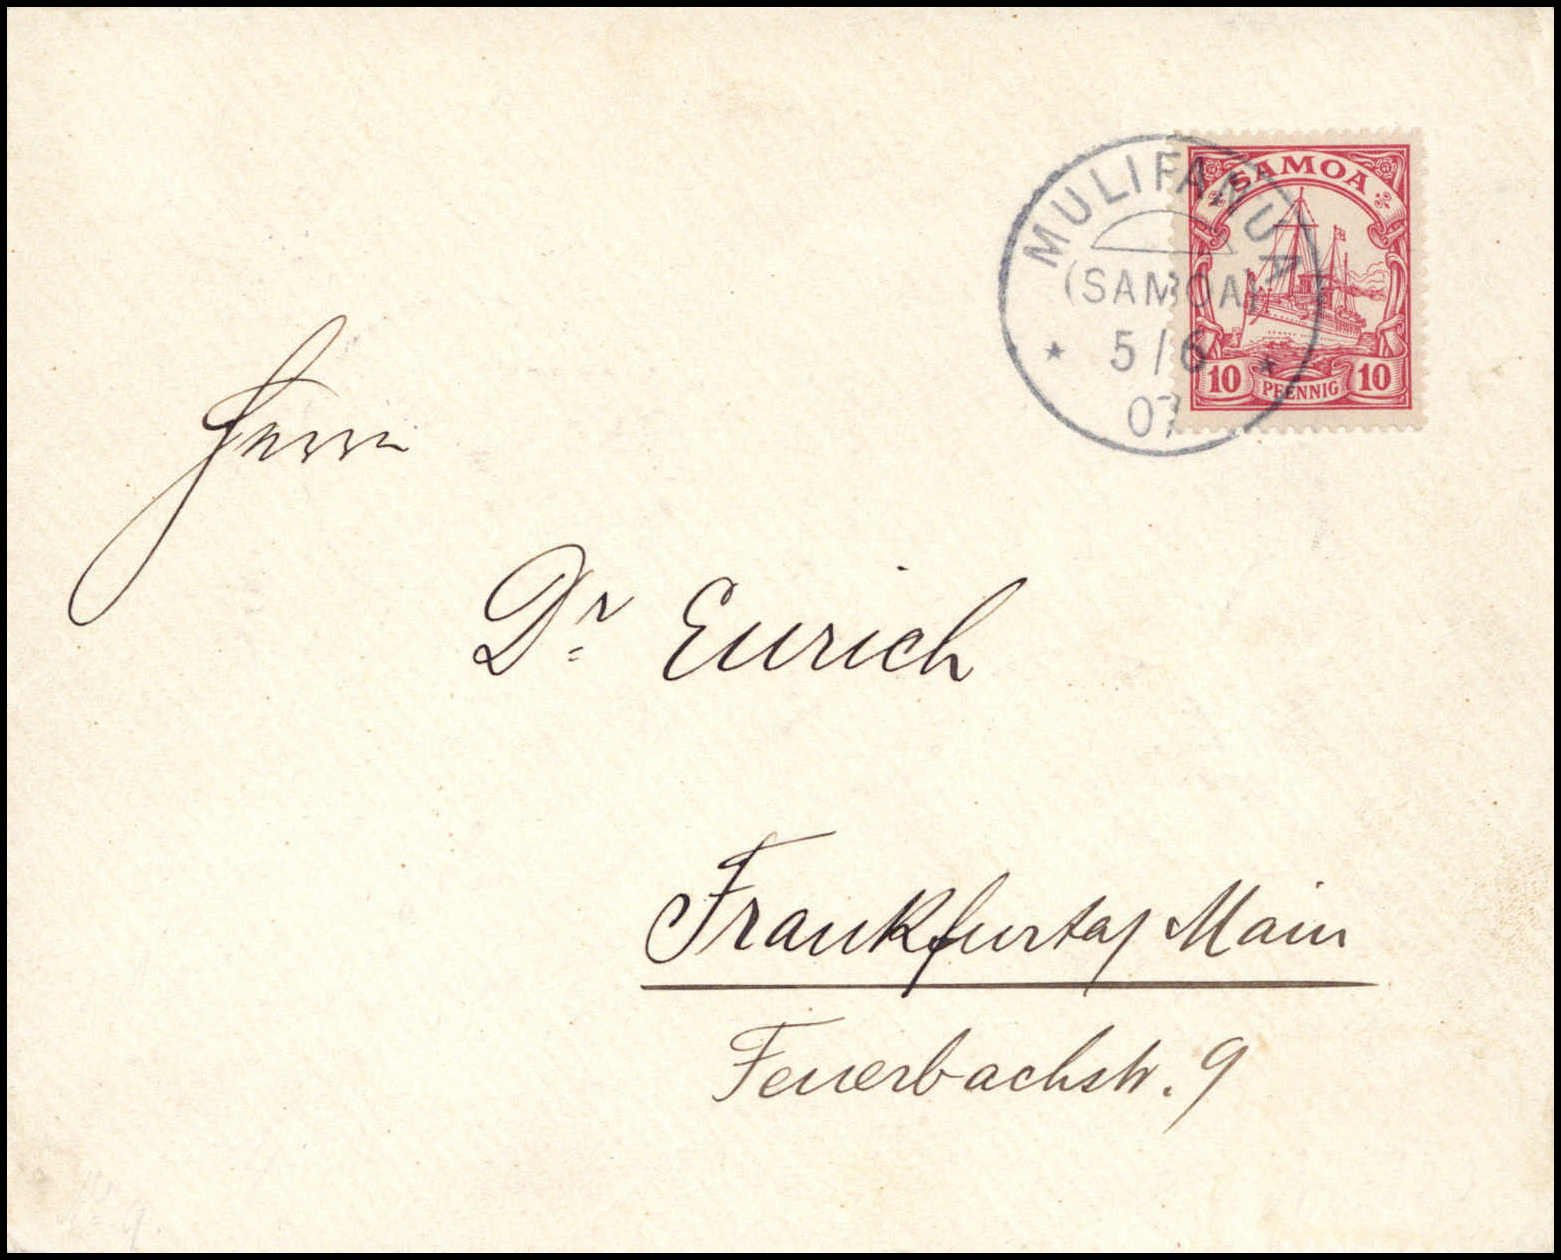 SAMOA
10 PFENNIG 10
MULIFANUA
(SAMOA)
5/6
07
Herrn
Dr Eurich
Frankfurt a/ Main
Feuerbachstr. 9